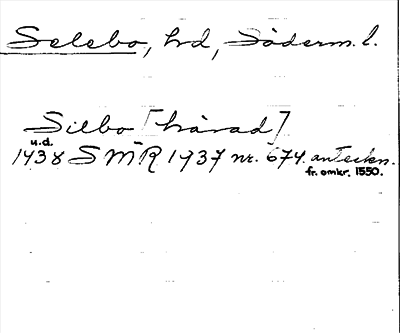 Selebo, hd, Söderm. l.
Silbo [härad]
u.d.
1438 SMR 1937 nr. 674. anteckn.
fr. omkr. 1550.